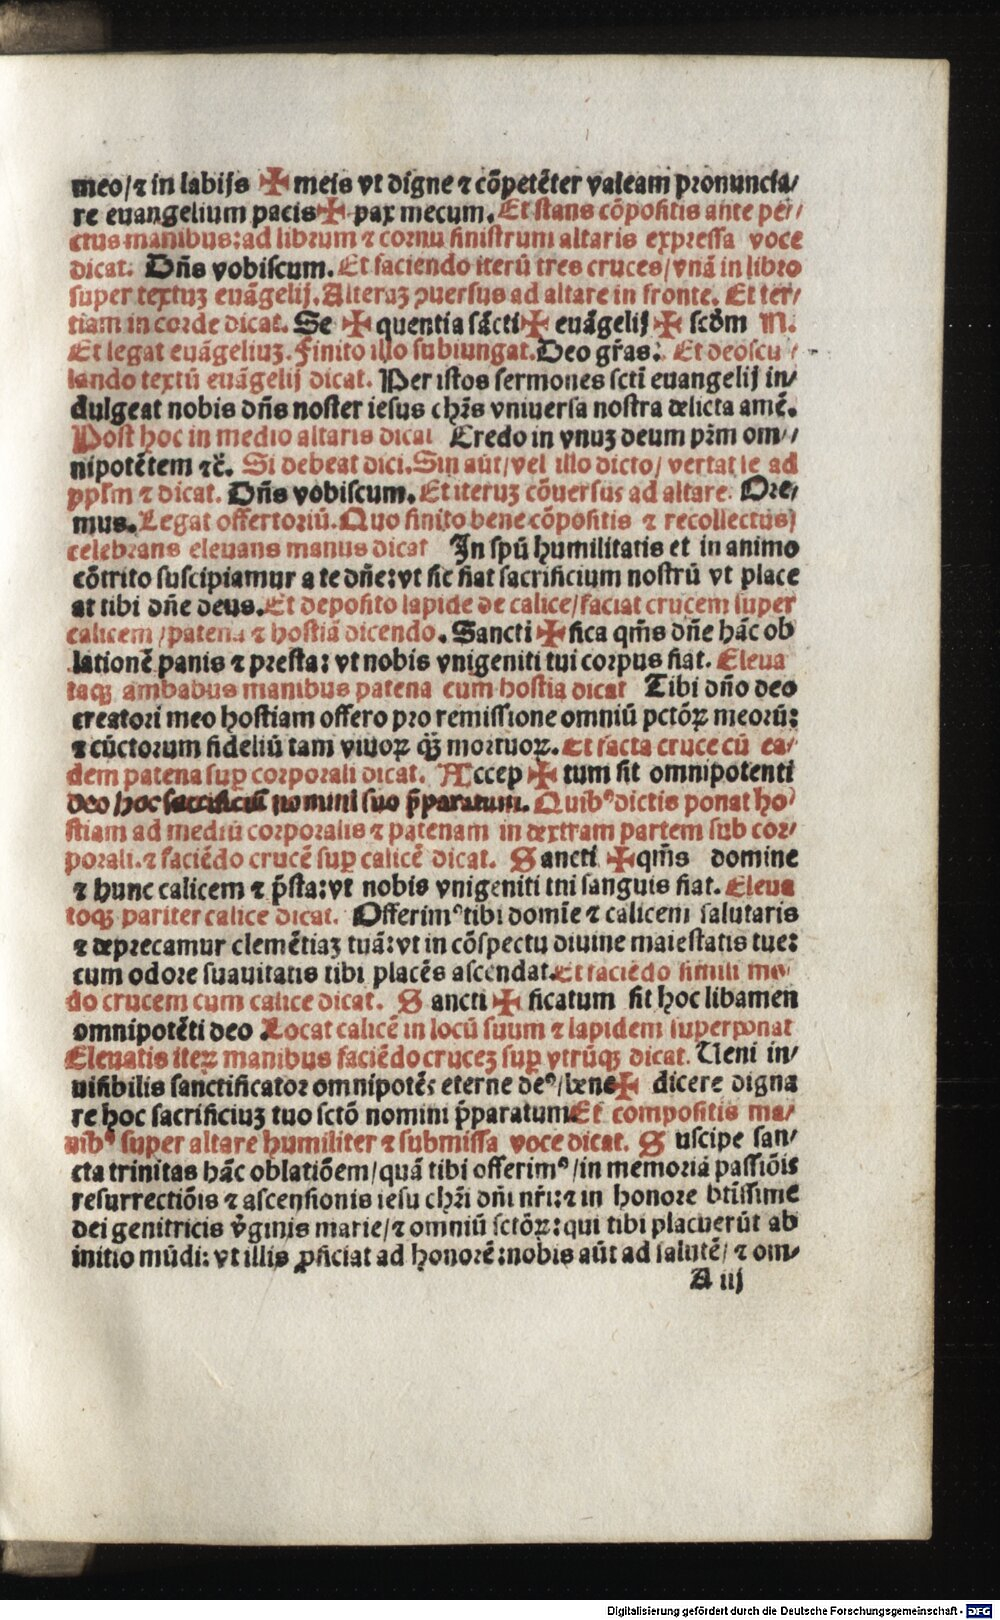 meo/⁊ in labijs ✠ meis vt digne ⁊ cõpetẽter valeam pronuncia/
re euangelium pacis ✠ pax mecum. Et stans cõpositis ante pe/
ctus manibus: ad librum ⁊ cornu sinistrum altaris expressa voce
dicat. Dñs vobiscum. Et faciendo iterũ tres cruces/ vnã in libro
super textuꝫ euãgelij. Alteraꝫ ꝯuersus ad altare in fronte. Et ter/
tiam in corde dicat. Se ✠ quentia sãcti ✠ euãgelij ✠ scðm N.
Et legat euãgeliuꝫ. Finito illo subiungat. Deo grãs: Et deoscu/
lando textũ euãgelij dicat. Per istos sermones scti euangelij in/
dulgeat nobis dñs noster iesus chrs vniuersa nostra delicta amẽ.
Post hoc in medio altaris dicat Credo in vnuꝫ deum prm om/
nipotẽtem ⁊c̃. Si debeat dici. Sin aũt/ vel illo dicto/ vertat se ad
ppłm ⁊ dicat. Dñs vobiscum. Et iteruꝫ cõuersus ad altare. Ore/
mus. Legat offertoriũ. Quo finito bene cõpositis ⁊ recollectus
celebrans eleuans manus dicat In spũ humilitatis et in animo
cõtrito suscipiamur a te dñe: vt sic fiat sacrificium nostrũ vt place
at tibi dñe deus. Et deposito lapide de calice/ faciat crucem super
calicem/ patenã ⁊ hostiã dicendo. Sancti ✠ fica qm̃s dñe hãc ob
lationẽ panis ⁊ presta: vt nobis vnigeniti tui corpus fiat. Eleua
taqꝫ ambabus manibus patena cum hostia dicat Tibi dño deo
creatori meo hostiam offero pro remissione omniũ pctõꝝ meorũ:
⁊ cũctorum fideliũ tam viuoꝝ qꝫ̃ mortuoꝝ. Et facta cruce cũ ea/
dem patena suꝑ corporali dicat. Accep ✠ tum sit omnipotenti
deo hoc sacrificiũ nomini suo p̃paratum. Quibꝰ dictis ponat ho
stiam ad mediũ corporalis ⁊ patenam in dextram partem sub cor/
porali. ⁊ faciẽdo crucẽ suꝑ calicẽ dicat. Sancti ✠ qm̃s domine
⁊ hunc calicem ⁊ p̃sta: vt nobis vnigeniti tui sanguis fiat. Eleua
toqꝫ pariter calice dicat. Offerimꝰ tibi domĩe ⁊ calicem salutaris
⁊ deprecamur clemẽtiaꝫ tuã: vt in cõspectu diuine maiestatis tue:
cum odore suauitatis tibi placẽs ascendat. Et faciẽdo simili mo
do crucem cum calice dicat. Sancti ✠ ficatum sit hoc libamen
omnipotẽti deo. Locat calicẽ in locũ suum ⁊ lapidem superponat
Eleuatis iteꝝ manibus faciẽdo cruceꝫ suꝑ vtrũqꝫ dicat. Ueni in/
uisibilis sanctificator omnipotẽs eterne deꝰ/ bene ✠ dicere digna
re hoc sacrificiuꝫ tuo sctõ nomini p̃paratum. Et compositis ma/
nibꝰ super altare humiliter ⁊ submissa voce dicat. Suscipe san/
cta trinitas hãc oblatiõem/ quã tibi offerimꝰ/ in memoriã passiõis
resurrectiõis ⁊ ascensionis iesu chri dñi nri: ⁊ in honore btissime
dei genitricis vginis marie/ ⁊ omniũ sctõꝝ: qui tibi placuerũt ab
initio mũdi: vt illis ꝓficiat ad honorẽ: nobis aũt ad salutẽ/ ⁊ om/
A iij
Digitalisierung gefördert durch die Deutsche Forschungsgemeinschaft - DFG